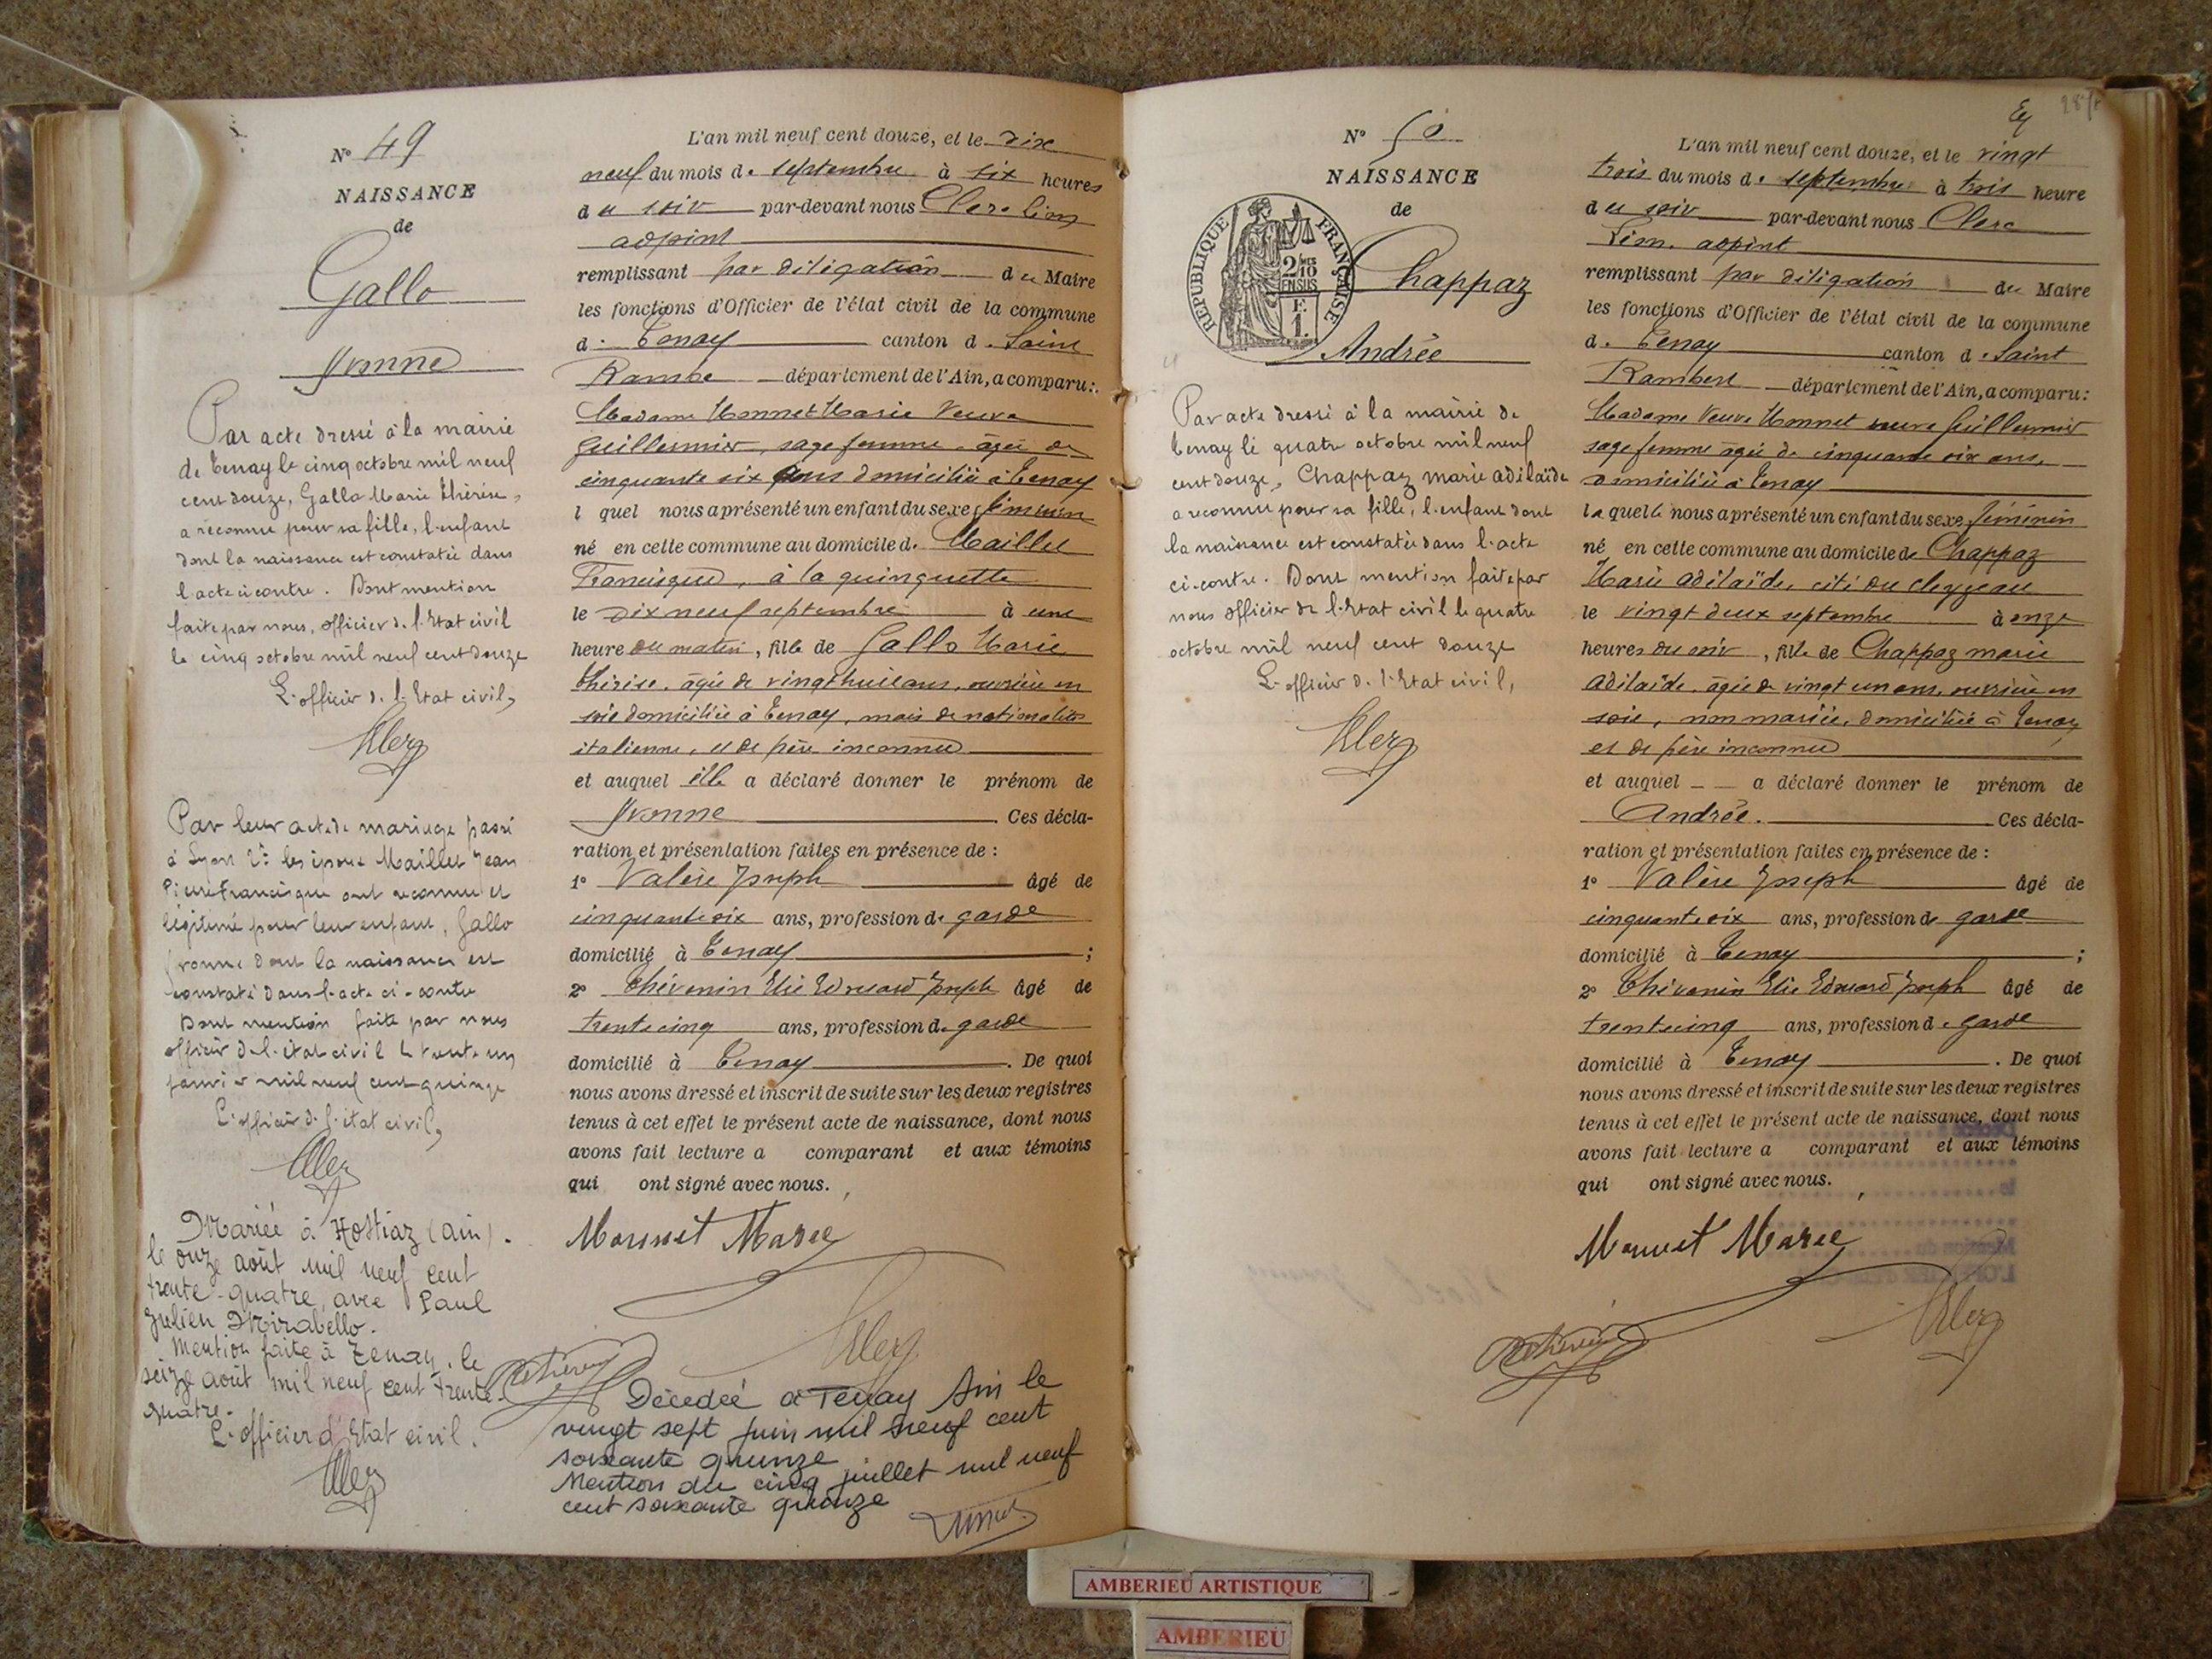 N° 49
NAISSANCE
de
Gallo
Yvonne
Par acte dressé à la mairie
de Tenay le cinq octobre mil neuf
cent douze, Gallo Marie Thérèse,
a reconnu pour sa fille, l'enfant
dont la naissance est constatée dans
l'acte ci contre. Dont mention
faite par nous, officier de l'Etat civil
le cinq octobre mil neuf cent douze
L'officier de l'Etat civil,
Par leur acte de mariage passé
à Lyon les époux Maillet Jean
Pierre Francisque ont reconnu et
légitimé pour leur enfant, Gallo
Yvonne dont la naissance est
constaté dans l'acte ci-contre
Dont mention faite par nous
officier de l'état civil le trente un
janvier mil neuf cent quinze
L'officier de l'état civil,
Mariée à Hostiaz (Ain).
le onze août mil neuf cent
trente-quatre, avec Paul
Julien Mirabello.
Mention faite à Tenay, le
seize août mil neuf cent trente-
quatre.
L'officier d'Etat civil.
L'an mil neuf cent douze, et le dix
neuf du mois de septembre à six heures
du soir par-devant nous Clerc
adjoint
remplissant par délégation du Maire
les fonctions d'Officier de l'état civil de la commune
de Tenay canton de Saint
Rambe département de l'Ain, a comparu:
Madame Monnet Marie Veuve
Guillermier, sage femme âgée de
cinquante six ans domiciliée à Tenay
l quel nous a présenté un enfant du sexe féminin
né en cette commune au domicile de Maillet
Francisque, à la guinguette
le dix neuf septembre à une
heure du matin, fille de Gallo Marie
thérèse, âgée de vingt huit ans, ouvrière en
soie domiciliée à Tenay, mais de nationalité
italienne, et de père inconnu
et auquel elle a déclaré donner le prénom de
Yvonne Ces décla-
ration et présentation faites en présence de :
1° Valère Joseph âgé de
cinquante six ans, profession de garde
domicilié à Tenay ;
2° Thévenin Elie Edouard Joseph âgé de
trente cinq ans, profession de garde
domicilié à Tenay. De quoi
nous avons dressé et inscrit de suite sur les deux registres
tenus à cet effet le présent acte de naissance, dont nous
avons fait lecture a comparant et aux témoins
qui ont signé avec nous.
Monnet Marie
Décedée à Tenay Ain le
vingt sept juin mil neuf cent
soixante quinze
Mention du cinq juillet mil neuf
cent soixante quinze
N° 50
NAISSANCE
de
REPUBLIQUE FRANÇAISE
2/10 EN SUS
E.
1.
Chappaz
Andrée
Par acte dressé à la mairie de
Tenay le quatre octobre mil neuf
cent douze, Chappaz marie adélaïde
a reconnu pour sa fille, l'enfant dont
la naissance est constatée dans l'acte
ci-contre. Dont mention faite par
nous officier de l'Etat civil le quatre
octobre mil neuf cent douze
L'officier de l'Etat civil,
L'an mil neuf cent douze, et le vingt
trois du mois de septembre à trois heure
du soir par-devant nous Clerc
adjoint
remplissant par délégation du Maire
les fonctions d'Officier de l'état civil de la commune
de Tenay canton de Saint
Rambert département de l'Ain, a comparu:
Madame Veuve Monnet veuve Guillermier
sage femme âgée de cinquante six ans,
domiciliée à Tenay
laquelle nous a présenté un enfant du sexe féminin
né en cette commune au domicile de Chappaz
Marie adélaïde, cité du
le vingt deux septembre à onze
heures du soir, fille de Chappaz marie
adélaïde, âgée de vingt un ans, ouvrière en
soie, non mariée, domiciliée à Tenay
et de père inconnu
et auquel a déclaré donner le prénom de
Andrée. Ces décla-
ration et présentation faites en présence de :
1° Valère Joseph âgé de
cinquante six ans, profession de garde
domicilié à Tenay ;
2° Thévenin Elie Edouard Joseph âgé de
trente cinq ans, profession de garde
domicilié à Tenay. De quoi
nous avons dressé et inscrit de suite sur les deux registres
tenus à cet effet le présent acte de naissance, dont nous
avons fait lecture a comparant et aux témoins
qui ont signé avec nous.
Monnet Marie
AMBERIEU ARTISTIQUE
AMBERIEU